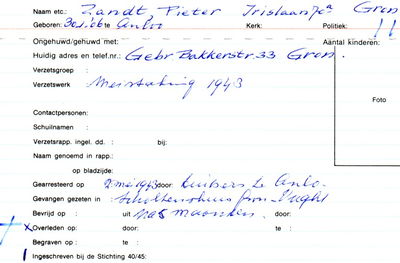 Naam etc.: Zandt Pieter Irislaan 7a Gron
Geboren: 30-1-'06 te Anloo Kerk: Politiek:
Ongehuwd/gehuwd met: Aantal kinderen:
Huidig adres en telef.nr.: Gebr Bakkerstr. 33 Gron.
Verzetsgroep :
Verzetswerk : Meistaking 1943
Foto
Contactpersonen:
Schuilnamen :
Verzetsrapp. ingel. dd. : bij:
Naam genoemd in rapp.:
op bladzijde:
Gearresteerd op : 2 mei 1943 door: te Anlo.
Gevangen gezeten in : Scholtenshuis Gron - Vught
Bevrijd op : uit na 5 maanden door:
x Overleden op: door: te :
Begraven op : te :
Ingeschreven bij de Stichting 40/45: